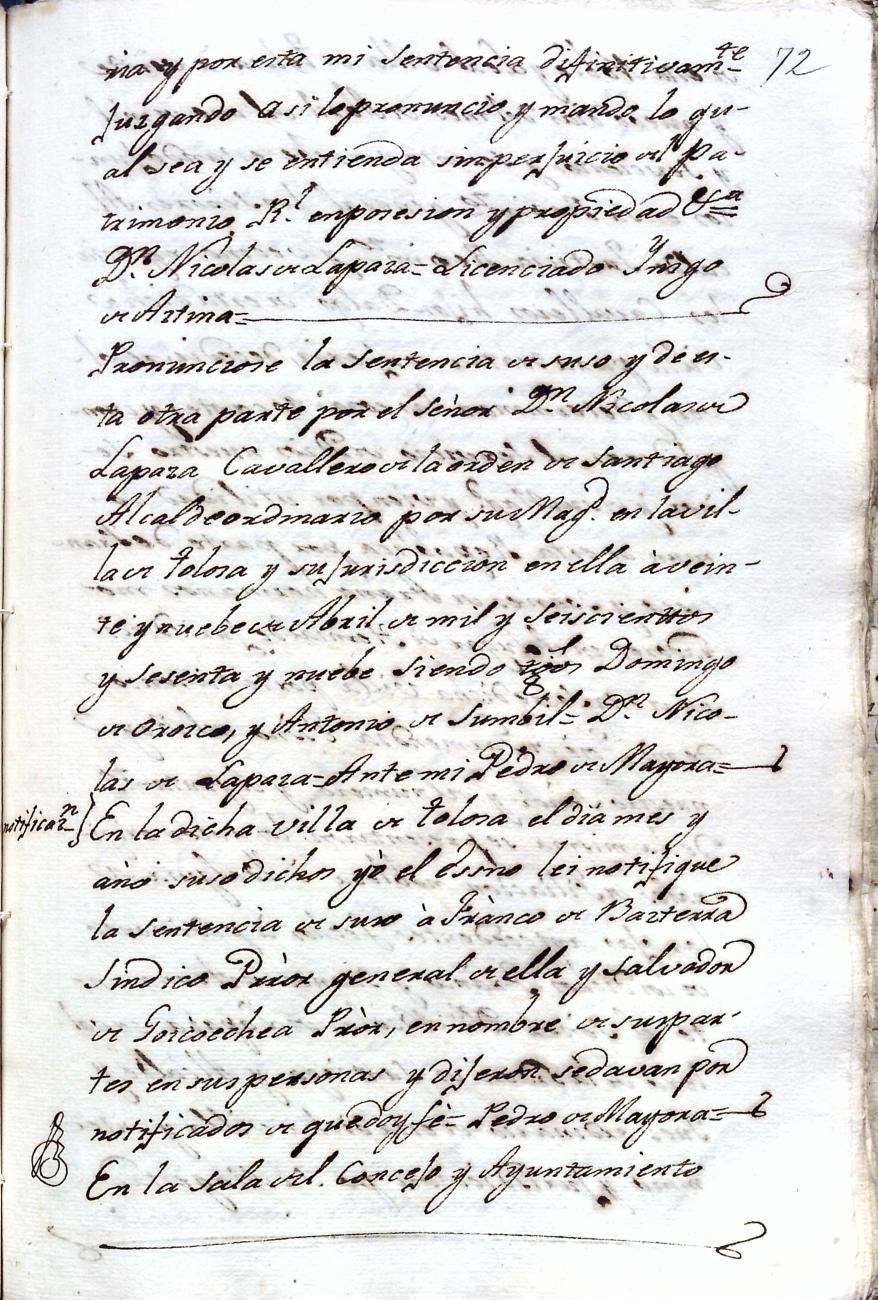 72
ria y por esta mi sentencia difinitivam.te
Juzgando asi lo pronuncio y mando lo qu-
al sea y se entienda sin perjuicio del Pa-
trimonio R.l en posesion y propiedad &a=
D.n Nicolas de Lapaza= Licenciado Ynigo
de Artina=
Pronunciose la sentencia de suso y de es-
ta otra parte por el señor D.n Nicolas de
Lapaza Cavallero de la orden de Santiago
Alcalde ordinario por su Mag.d en la vil-
la de Tolosa y su jurisdiccion en ella à vein-
te y nuebe de Abril de mil y seiscienttos
y sesenta y nuebe siendo tgos Domingo
de Orozco, y Antonio de Sumbil= D.n Nico-
las de Lapaza= Ante mi Pedro de Mayora=
notificaz.n } En la dicha villa de Tolosa el dia mes y
año suso dichos yò el essno lei notifique
la sentencia de suso à Franco de Bazterra
Sindico Pròr general de ella y Salvador
de Goicoechea Pròr, en nombre de sus par-
tes en sus personas y dijeron se davan por
notificados de que doy fe= Pedro de Mayora=
En la sala del Concejo y Ayuntamiento